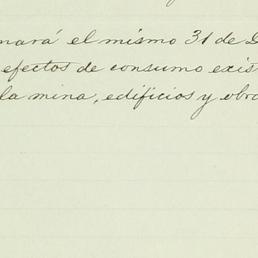 mará el mismo 31 de D
efectos de consumo exis
la mina, edificios y obra